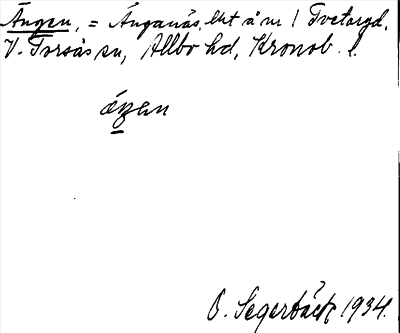 Ängen, = Änganäs, lht å nr 1 Tvetargd,
V. Torsås sn, Allbo hd, Kronob. l.
O. Segerbäck 1934.